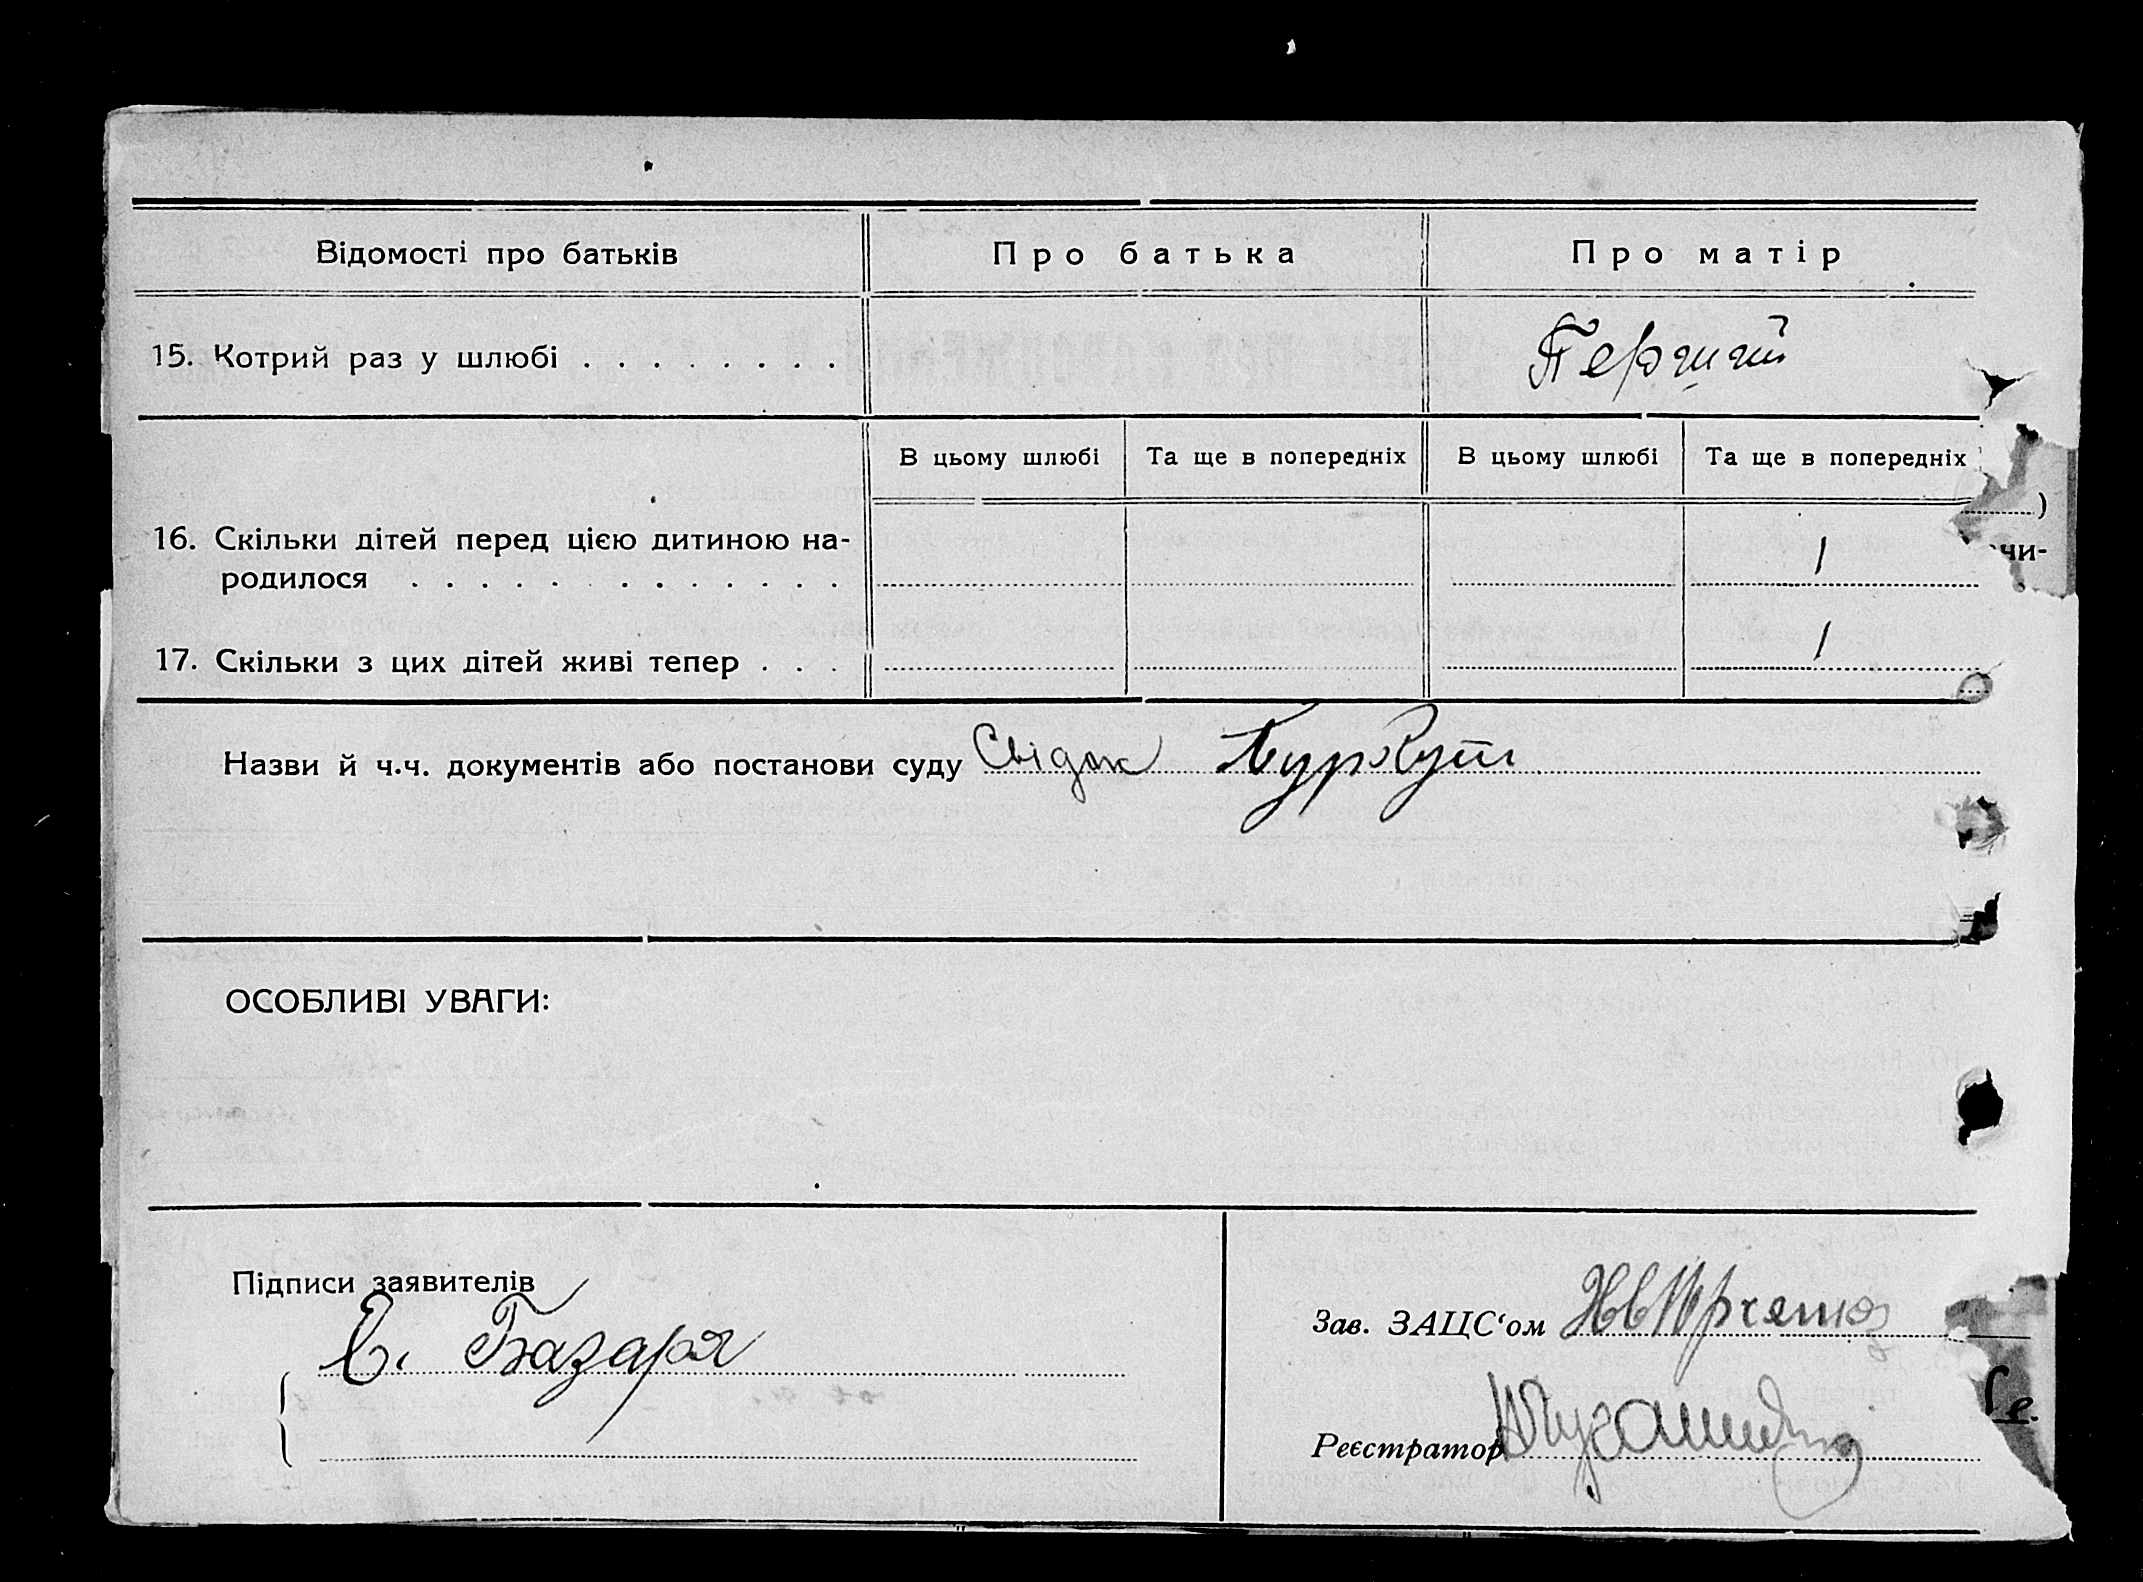 Відомості про батьків Про батька Про матір
15. Котрий раз у шлюбі . . . . . . . . Перший
В цьому шлюбі Та ще в попередніх В цьому шлюбі Та ще в попередніх
)
16. Скільки дітей перед цією дитиною на- 1 чи-
родилося . . . . . . . . . . . . .
17. Скільки з цих дітей живі тепер . . . 1
Назви й ч.ч. документів або постанови суду Свідок Буркут
ОСОБЛИВІ УВАГИ:
Підписи заявителів
Є. Базаря
Зав. ЗАЦС‘ом
Реєстратор